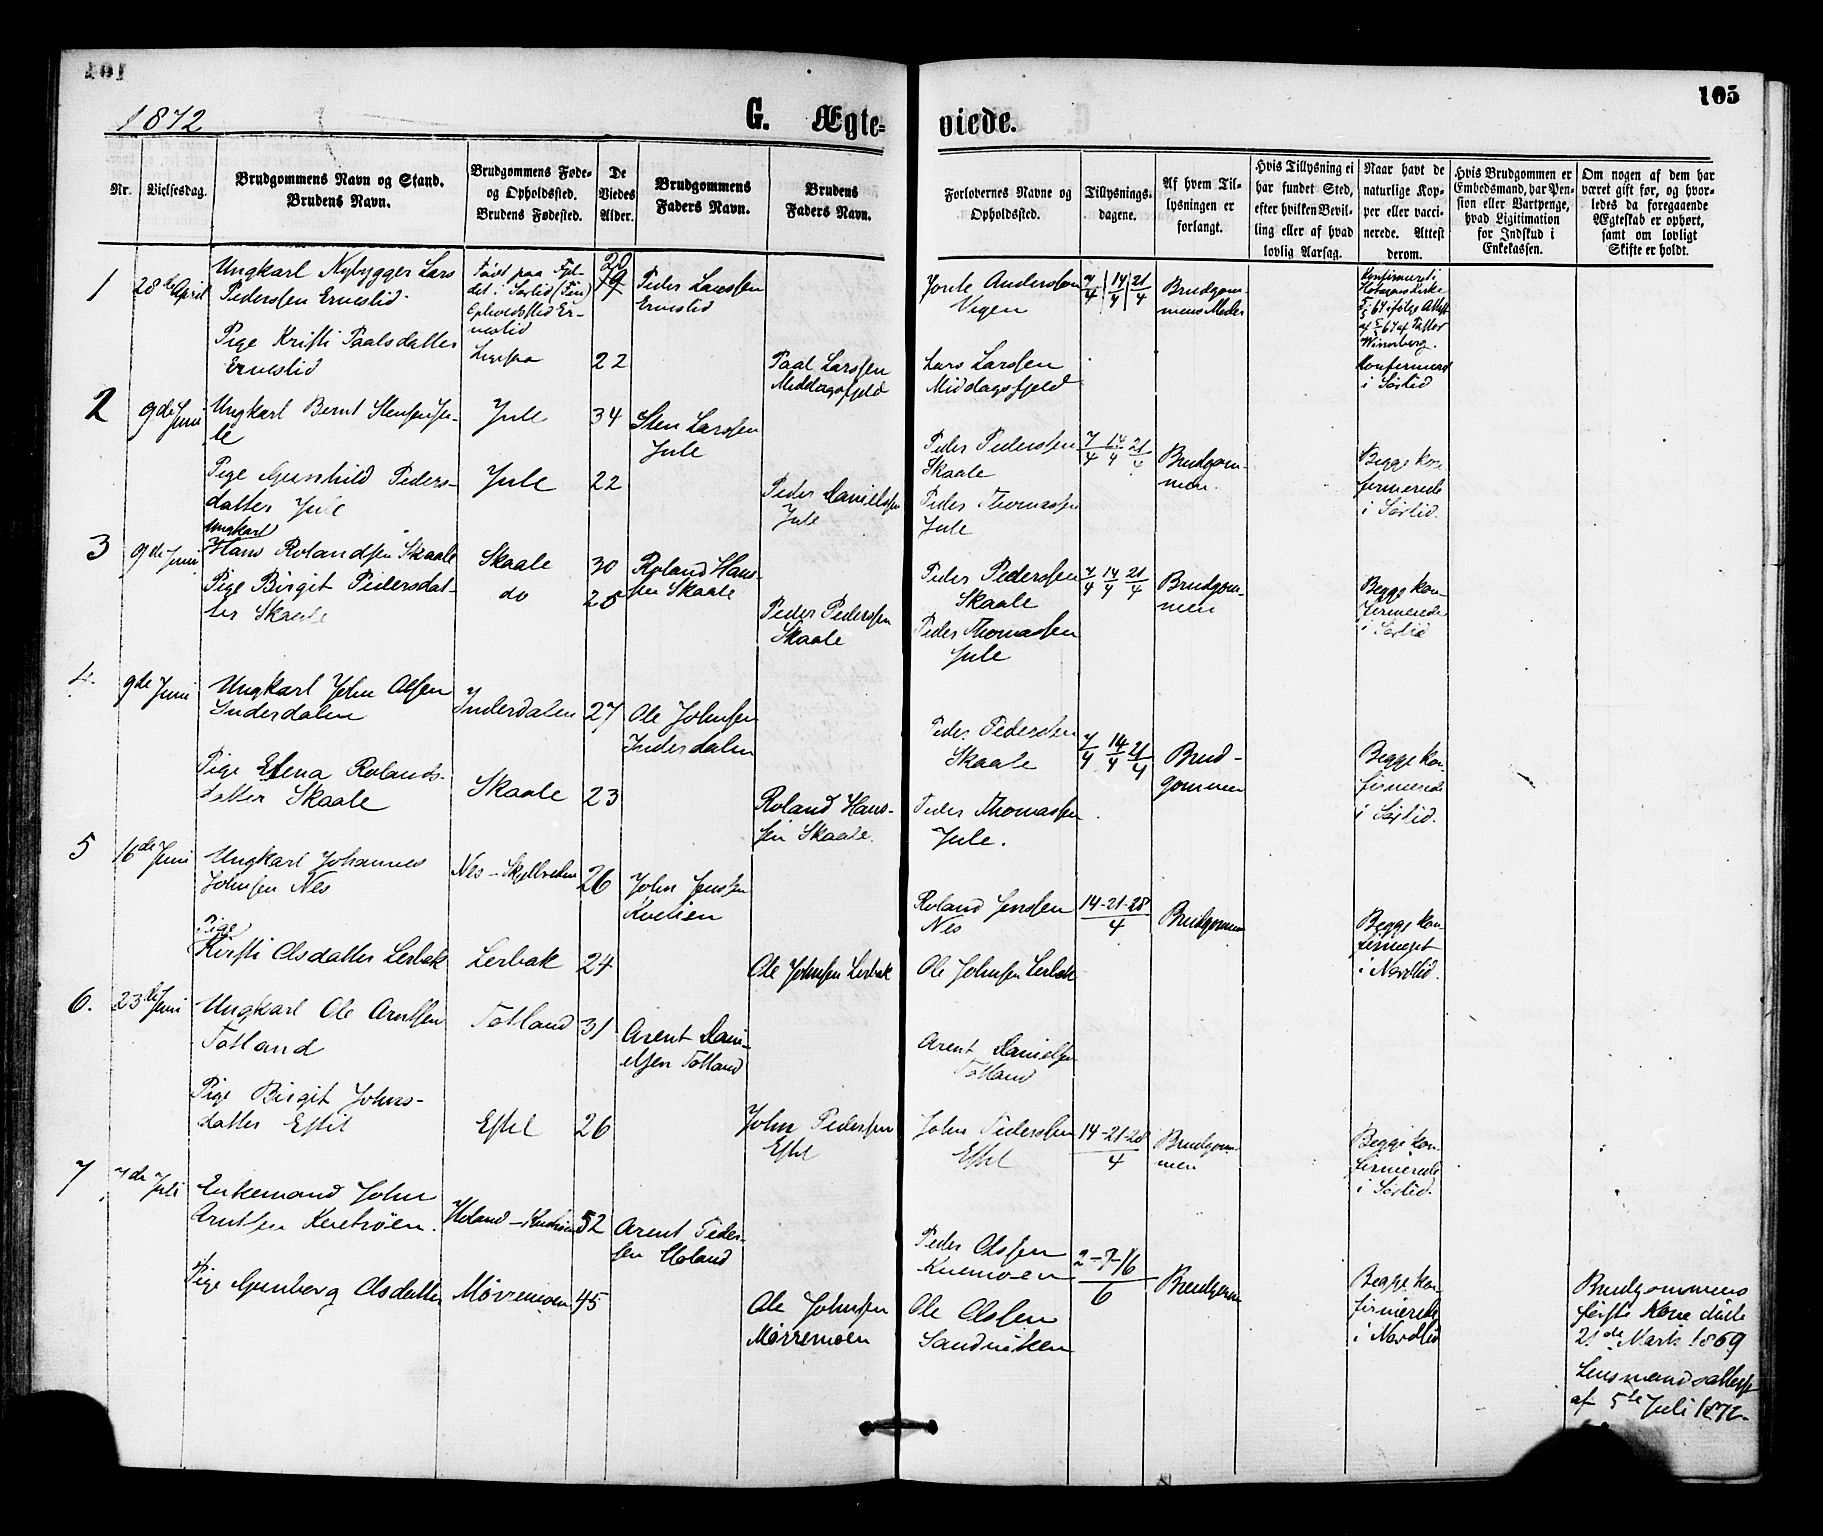 101
105
1872
G. Ægte-
viede.
Nr.
Vielsesdag.
Brudgommens Navn og Stand.
Brudens Navn.
Brudgommens Føde-
og Opholdssted.
Brudens Fødested.
De
Viedes
Alder.
Brudgommens
Faders Navn.
Brudens
Faders Navn.
Forlovernes Navne og
Opholdssted.
Tillysnings-
dagene.
Af hvem Til-
lysningen er
forlangt.
Hvis Tillysning ei
har fundet Sted,
efter hvilken Bevil-
ling eller af hvad
lovlig Aarsag.
Naar havt de
naturlige Kop-
per eller vacci-
nerede. Attest
derom.
Hvis Brudgommen er
Embedsmand, har Pen-
sion eller Vartpenge,
hvad Ligitimation
for Indskud i
Enkekassen.
Om nogen af dem har
været gift før, og hvor-
ledes da foregaaende
Ægteskab er ophørt,
samt om lovligt
Skifte er holdt.
1
28de April
Ungkarl Nybygger Lars
Pederssen Ernestid
Født paa Fjel-
det i Sørlid (Fin)
Opholdssted Er-
nestid
20
Peder Larssen
Ernestid
Jonte Anderssen
Vegen
7/4 14/4 21/4
Brudgom-
mens Moder
Konfirmeret i
Kirke
Pige Kristi Paalsdatter
Ernestid
Ligesaa
22
Paal Larssen
Middagsfjeld
Lars Larssen
Middagsfjeld
Konfirmered
i Sørlid
2
9de Juni
Ungkarl Bernt Stenssen Ju-
le
Jule
34
Sten Larssen
Jule
Peder Pederssen
Skaale
7/4 14/4 21/4
Brudgom-
men.
Begge kon-
firmerede
i Sørlid.
Pige Gunhild Peders-
datter Jule
Jule
22
Peder Danielssen
Jule
Peder Thomassen
Jule
3
9de Juni
Ungkarl
Hans Rolandssen Skaale
Skaale
30
Roland Hans-
sen Skaale
Peder Pederssen
Skaale
7/4 14/4 21/4
Brudgom-
men
Begge kon-
firmerede
i Sørlid
Pige Birgit Pedersdat-
ter Skaale
do
25
Peder Pederssen
Skaale
Peder Thomassen
Jule
4.
9de Juni
Ungkarl John Olssen
Inderdalen
Inderdalen
27
Ole Johnssen
Inderdalen
Peder Pederssen
Skaale
7/4 14/4 21/4
Brud-
gommen
Begge kon-
firmerede
i Sørlid.
Pige Elena Rolands-
datter Skaale
Skaale
23
Roland Hans-
sen Skaale.
Peder Thomassen
Jule.
5
16de Juni
Ungkarl Johannes
Johnssen Nes
26
John Jenssen
Kvelien
Roland Jenssen
Nes
14-21-28
4
Brudgommen
Begge kon-
firmeret
i Nordlid.
Pige
Kirsti Olsdatter Lerbak
Lerbak
24
Ole Johnssen Lerbak
Ole Johnssen Lerbak
6.
23de Juni
Ungkarl Ole Arntssen
Totland
Totland
31
Arent Dani-
elssen Totland
Arent Danielssen
Totland
Pige Birgit Johns-
datter Estil
Estil
26
John Pederssen
Estil
John Pederssen
Estil
14-21-28
4
Brudgom-
men
Begge kon-
firmerede
i Sørlid.
7
7de Juli
Enkemand John
Arntssen Kuemoen.
52
Arent Peder-
sen Holand
Peder Olssen
Kuemoen
2-9-16
6
Brudgommen
Begge kon-
firmerede
i Nordlid
Pige Gunborg Olsdatter
Mørremoen
45
Ole Johnssen
Mørremoen
Ole Olssen
Sandviken
Brudgommens
første Kone døde
21de Marts 1869
Lensmandsattest
af 5te Juli 1872.